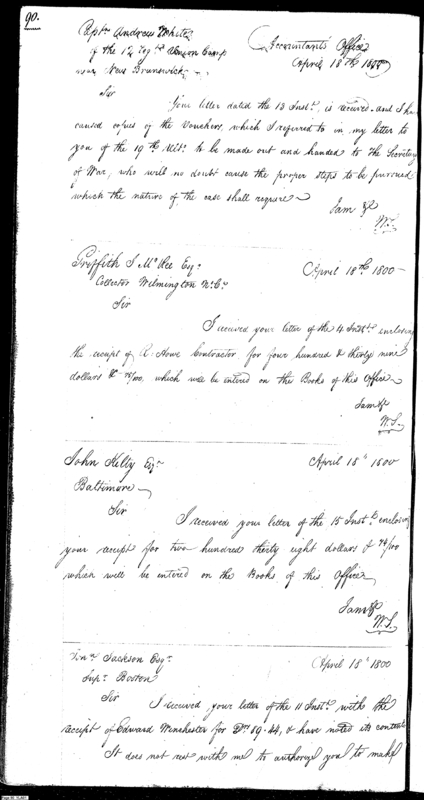 90.
Capt. Andrew White
of the 12 Regt. Union Camp
near New Brunswick
Accountants Office
April 18th 1800
Sir
Your letter dated the 13 Inst. is received and I have
caused copies of the Vouchers, which I referred to in my letter to
you of the 19th Ult. to be made out and handed to the Secretary
of War, who will no doubt cause the proper steps to be pursued
which the nature of the case shall require
I am &c
W. S.
Griffith J McRee Esqr.
April 18th 1800
Collector Wilmington N. C.
Sir
I received your letter of the 4 Inst. enclosing
the receipt of A. Howe Contractor for four hundred & thirty nine
dollars & /100, which will be entered on the Books of this Office
I am &c
W. S.
John Kilty Esqr.
April 18th 1800
Baltimore
Sir
I received your letter of the 15 Inst. enclosing
your receipt for two hundred thirty eight dollars & 74/100
which will be entered on the Books of this Office
I am &c
W. S.
Jonn. Jackson Esqr.
April 18th 1800
Supr. Boston
Sir
I received your letter of the 11 Inst. with the
receipt of Edward Winchester for Drs 19.44, & have noted its contents
It does not rest with me to authorize you to make